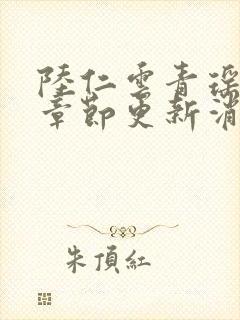 陸仁雲青瑶
章節更新消
朱頂紅